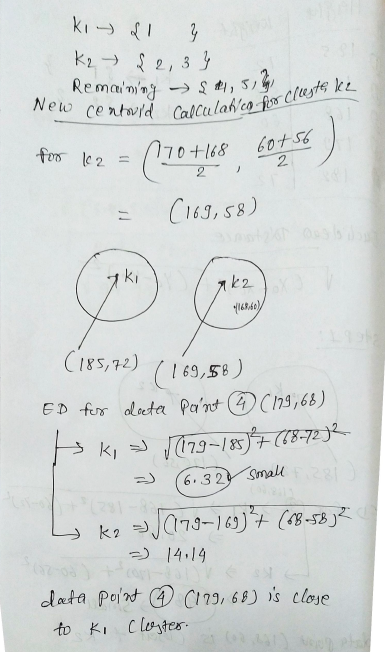 K1 → { 1 }
K2 → { 2, 3 }
Remaining → { 4, 5, }
New centroid Calculation for cluster k2
for k2 = (170+168 / 2 , 60+56 / 2)
= (169,58)
K1 k2
(168,60)
(185,72) (169,58)
ED for data Point ④ (179,68)
→ K1 ⇒ √(179-185)² + (68-72)²
⇒ 6.32 small
→ k2 ⇒ √(179-169)² + (68-58)²
⇒ 14.14
data point ④ (179, 68) is close
to K1 Cluster.